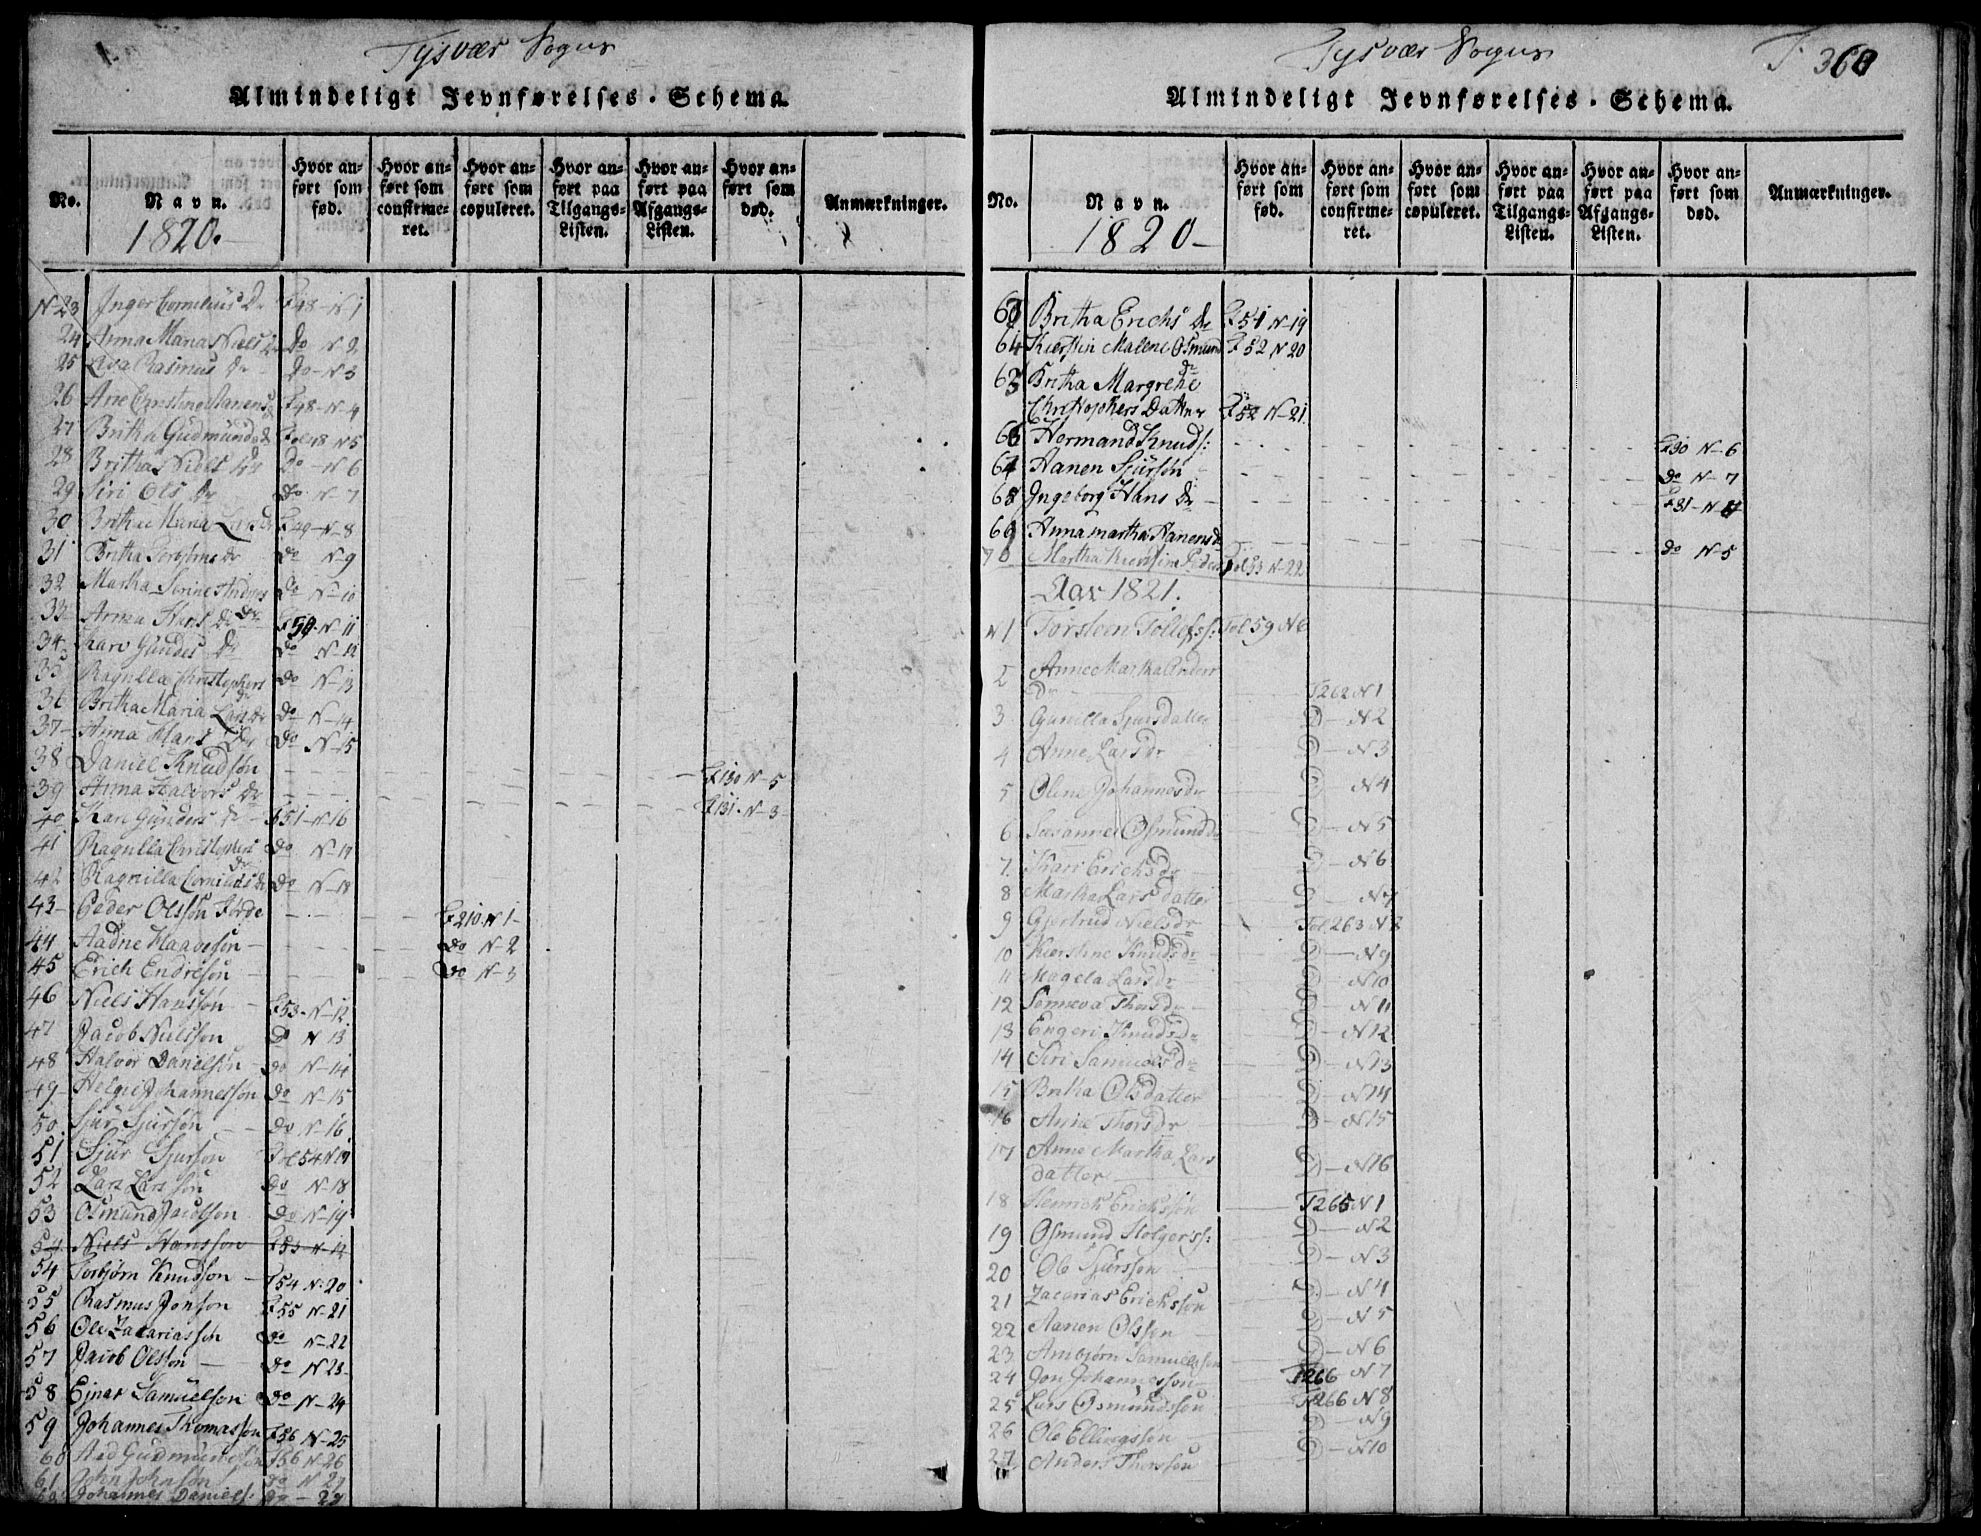 Tysvær Sogns
Almindeligt Jevnførelses-Schema.
No.
Navn.
1820.
Hvor anført som fød.
Hvor anført som confirmeret.
Hvor anført som copuleret.
Hvor anført paa Tilgangs-Listen.
Hvor anført paa Afgangs-Listen.
Hvor anført som død.
Anmærkninger.
N-23 Inger Cornelius Dr F48-N1
24 Anna Maria Niels Dr Do N-2
25 Elva Rasmus Dr Do-N3
26 Ane Christine Aanens Dr F48-N-4
27 Britha Gudmunds Dr Fol48 N5
28 Britha Niels Dr Do-N-6
29 Siri Ols Dr Do N-7
30 Britha Maria Lars Dr F49-N-8
31 Britha Torbjørns Dr Do N-9
32 Martha Serine Anders Dr Do N-10
33 Anna Hans Dr F50-N-11
34 Kari Gundes Dr Do N-12
35 Ragnilla Christophers Dr Do N-13
36 Britha Maria Lars Dr Do N-14
37 Anna Hans Dr Do N-15
38 Daniel Knudsøn F130 N-5
39 Anna Halvors Dr F131-N-3
40 Kari Gunders Dr F51-N16
41 Ragnilla Christophers Dr Do N-17
42 Ragnilla Cornelius Dr Do N-18
43 Peder Olssøn Førde F210 N1
44 Aadne Haavesøn Do N-2
45 Erich Endresøn Do N-3
46 Niels Hanssøn F53-N-12
47 Jacob Nielssøn Do N 13
48 Halvor Danielsøn Do N-14
49 Helgie Johannessøn Do N-15
50 Sjur Sjursøn Do N-16
51 Sjur Sjursøn Fol54 N17
52 Lars Larssøn Do N-18
53 Osmund Jacobsøn Do N-19
54 Niels Hanssøn F53-N-12
54 Torbjørn Knudsøn F54 N-20
55 Rasmus Jonsøn F55 N-21
56 Ole Zakariassøn Do N-22
57 Jacob Olssøn Do N23
58 Ejnar Samuelsøn Do N-24
59 Johannes Thomassøn F56 N-25
60 Gudmundsøn F56 N-26
61 John Johnsøn Do N-27
Johannes Daniels: Do - 27
Tysvær Sogns
F. 360
Almindeligt Jevnførelses-Schema.
No.
Navn.
1820
Hvor anført som fød.
Hvor anført som confirmeret.
Hvor anført som copuleret.
Hvor anført paa Tilgangs-Listen.
Hvor anført paa Afgangs-Listen.
Hvor anført som død.
Anmærkninger.
63 Britha Erichs Dr F51 N-19
64 Kierstin Malene Osmund Dr F52 N20
65 Britha Margrehe
Christophers Datter F52 N-21
66 Hermand Knuds: F130 N-6
67 Aanen Sjursøn Do N-7
68 Ingeborg Hans Dr F131-N-4
69 Anna martha Aanens Dr Do N-5
70 Martha Kierstine Peders Fol53 N-22
Aar 1821.
N1 Torsteen Tollefss: Fol59 N6
2 Anne Martha Anders
Dr F262 N1
3 Gunilla Sjursdatter D-N2
4 Anne Lars dr D-N3
5 Olene Johannes dr D N4
6 Susanne Osmunds dr D-N5
7 Kari Erichs dr D-N6
8 Martha Lars datter D-N7
9 Gjertrud Niels dr Fol.263 N8
10 Kierstine Knuds dr D-N9
11 Magela Lars dr D-N10
12 Sønneva Thors dr D-N11
13 Engeri Knuds dr D-N12
14 Siri Samuels dr D-N13
15 Britha Olsdatter D-N14
16 Anne Thors dr D-N15
17 Anne Martha Lars
datter D-N16
18 Henrich Erichssøn F265 N1
19 Osmund Holgerss: D-N2
20 Ole Sjurssøn D-N3
21 Zacarias Erichssøn D-N4
22 Aanen Olssøn D-N5
23 Ambjørn Samuelssøn D-N6
24 Jon Johannessøn F266 N7
25 Lars Osmundssøn F266 N8
26 Ole Ellingssøn D-N9
27 Anders Thorssøn D-N10